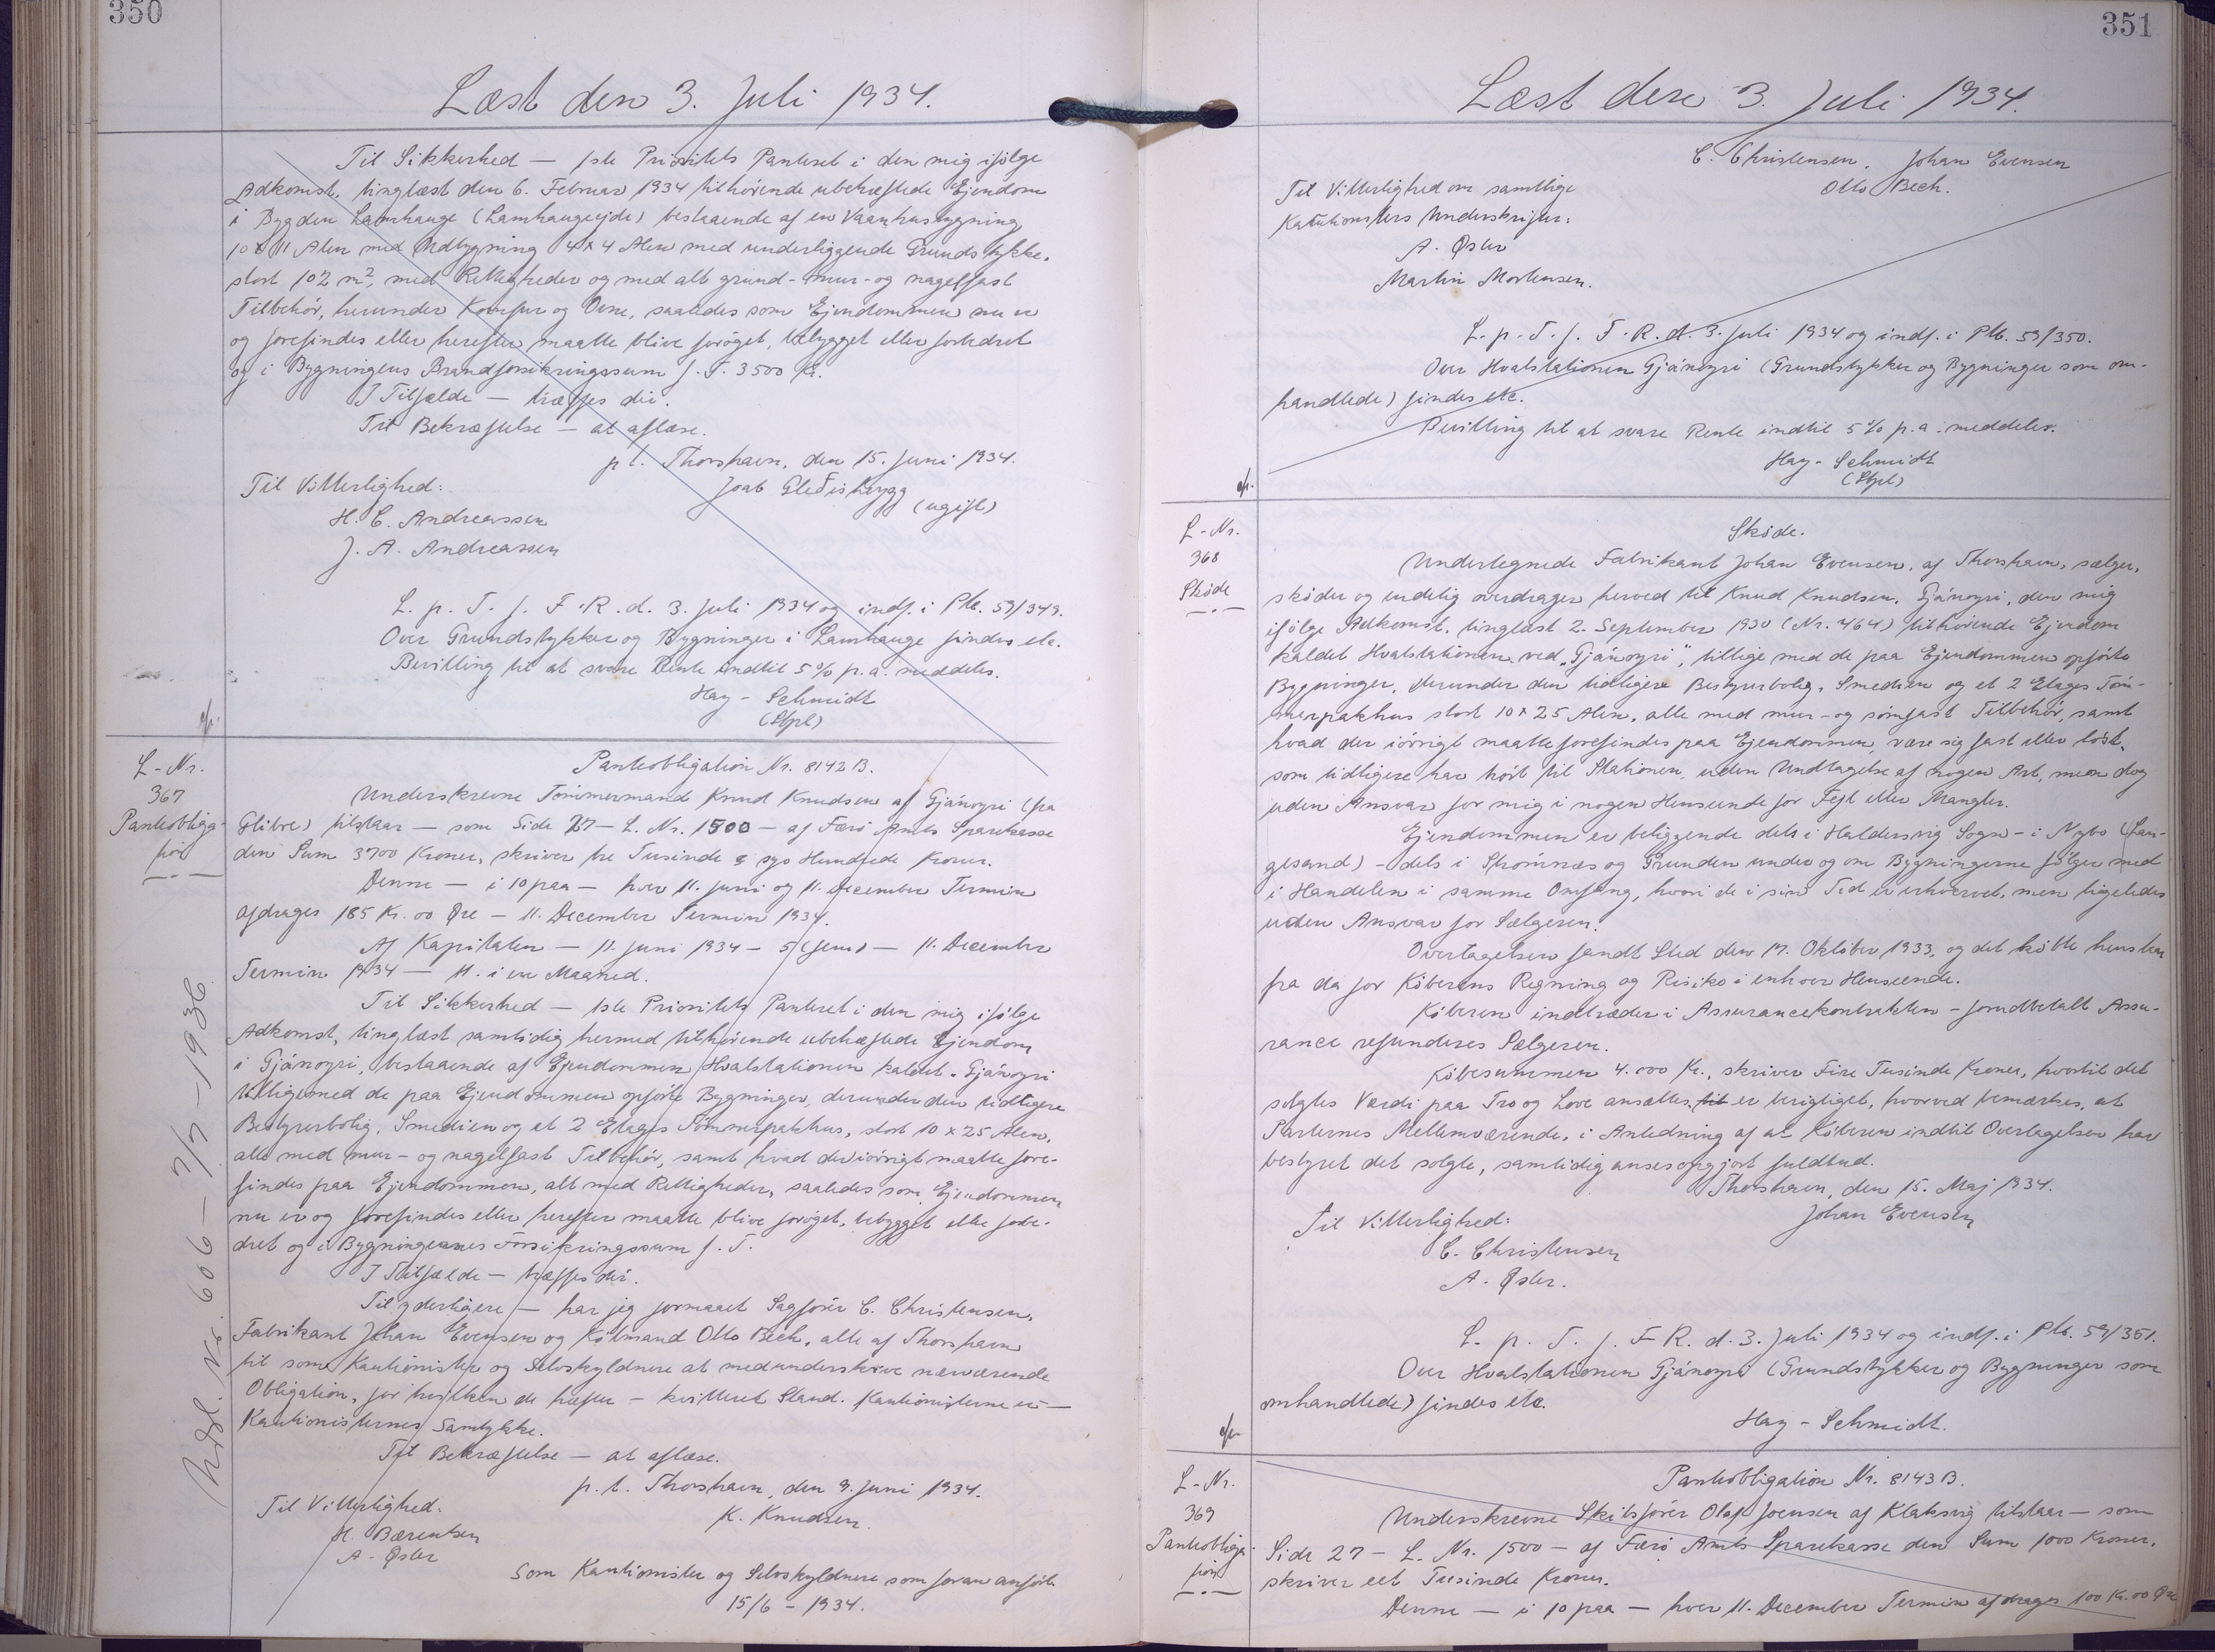 350
Læst den 3. Juli 1934.
Til Sikkerhed — 1ste Prioritets Panteret i den mig ifølge
Adkomst, tinglæst den 6. Februar 1934 tilhørende ubehæftede Ejendom
i Bygden Lamhauge (Lamhaugeejde) bestaaende af en Vaanhusbygning
10 x 11 Alen med Udbygning 4 x 4 Alen med underliggende Grundstykke,
stort 102 m², med Rettigheder og med alt grund- mur- og nagelfast
Tilbehör, herunder Komfur og Ovne, saaledes som Ejendommen nu er
og forefindes eller herefter maatte blive forøget, bebygget eller forbedret
og i Bygningens Brandforsikringssum f. T. 3500 Kr.
I Tilfælde — træffes dér.
Til Bekræftelse — at aflæse.
p. t. Thorshavn, den 15. Juni 1934.
Joab Gleðisheygg
(ugift)
Til Vitterlighed:
H. C. Andreassen
J. A. Andreassen
L. p. T. f. F. R. d. 3. Juli 1934 og indf. i Ptb. 59/349.
Over Grundstykker og Bygninger i Lamhauge findes etc.
Bevilling til at svare Rente indtil 5 % p. a. meddeles.
Hay - Schmidt
(Stpl)
L-Nr.
367
Pantobliga-
tion
Pantobligation Nr. 8142 B.
Underskrevne Tømmermand Knud Knudsen af Gjánoyri (fra
Glibre) tilstaar — som Side 27 — L. Nr. 1500 — af Færø Amts Sparekasse
den Sum 3700 Kroner, skriver tre Tusinde & syv Hundrede Kroner.
Denne — i 10 paa — hver 11. Juni og 11. December Termin
afdrages 185 Kr. 00 Øre — 11. December Termin 1934.
Af Kapitalen — 11. Juni 1934 — 5 (fem) — 11. December
Termin 1934 — 11. i en Maaned.
Til Sikkerhed — 1ste Prioritets Panteret i den mig ifølge
Adkomst, tinglæst samtidig hermed tilhørende ubehæftede Ejendom
i Gjánoyri, bestaaende af Ejendommen Hvalstationen kaldet „Gjánoyri
tilligemed de paa Ejendommen opførte Bygninger, derunder den tidligere
Bestyrerbolig, Smedien og et 2 Etages Tømmerpakhus, stort 10 x 25 Alen,
alt med mur- og nagelfast Tilbehör, samt hvad der iøvrigt maatte fore-
findes paa Ejendommen, alt med Rettigheder, saaledes som Ejendommen
nu er og forefindes eller herefter maatte blive forøget, bebygget eller forbe-
dret og i Bygningernes Forsikringssum f. T.
I Tilfælde — træffes dér.
Til yderligere — har jeg formaaet Sagfører C. Christensen,
Fabrikant Johan Evensen og Købmand Otto Bech, alle af Thorshavn
til som Kautionister og Selvskyldnere at medunderskrive nærværende
Obligation, for hvilken de hæfter — kvitteret Stand. Kautionisterne er —
Kautionisternes Samtykke.
Til Bekræftelse — at aflæse.
p. t. Thorshavn, den 9. Juni 1934.
K. Knudsen.
Til Vitterlighed:
H. Bærentsen
A. Øster
Som Kautionister og Selvskyldnere som foran anførte
15/6 - 1934.
Udsl. Nr. 606 — 7/7 — 1936
351
Læst den 3. Juli 1934.
C. Christensen. Johan Evensen
Otto Bech.
Til Vitterlighed om samtlige
Kautionisters Underskrifter:
A. Øster
Martin Mortensen.
L. p. T. f. F. R. d. 3. Juli 1934 og indf. i Ptb. 59/350.
Over Hvalstationen Gjánoyri (Grundstykker og Bygninger som om-
handlede) findes etc.
Bevilling til at svare Rente indtil 5 % p. a. meddeles.
Hay - Schmidt
(Stpl)
L-Nr.
368
Skøde
Skøde.
Undertegnede Fabrikant Johan Evensen, af Thorshavn, sælger,
skøder og endelig overdrager herved til Knud Knudsen, Gjánoyri, den mig
ifølge Adkomst, tinglæst 2. September 1930 (Nr. 464) tilhørende Ejendom
kaldet Hvalstationen ved „Gjánoyri", tillige med de paa Ejendommen opførte
Bygninger, derunder den tidligere Bestyrerbolig, Smedien og et 2 Etages Töm-
merpakhus stort 10 x 25 Alen, alle med mur- og sømfast Tilbehör, samt
hvad der iøvrigt maatte forefindes paa Ejendommen, være sig fast eller løst,
som tidligere har hørt til Stationen, uden Undtagelse af nogen Art, men dog
uden Ansvar for mig i nogen Henseende for Fejl eller Mangler.
Ejendommen er beliggende dels i Haldersvig Sogn - i Nybo (Lan-
gesand) - dels i Strømnæs og Grunden under og om Bygningerne følger med
i Handelen i samme Omfang, hvori de i sin Tid er erhvervet, men ligeledes
uden Ansvar for Sælgeren.
Overtagelsen fandt Sted den 17. Oktober 1933, og det købte henstaar
fra da for Køberens Regning og Risiko i enhver Henseende.
Køberen indtræder i Assurancekontrakten - forudbetalt Assu-
rance refunderes Sælgeren.
Købesummen 4.000 Kr., skriver Fire Tusinde Kroner, hvortil det
solgtes Værdi paa Tro og Love ansættes, er berigtiget, hvorved bemærkes, at
Parternes Mellemværende, i Anledning af at Køberen indtil Overtagelsen har
bestyret det solgte, samtidig anses opgjort fuldtud.
Thorshavn, den 15. Maj 1934.
Johan Evensen
Til Vitterlighed:
C. Christensen
A. Øster.
L. p. T. f. F R. d. 3. Juli 1934 og indf. i Ptb. 59/351.
Over Hvalstationen Gjánoyri (Grundstykker og Bygninger som
omhandlede) findes etc.
Hay - Schmidt.
L-Nr.
369
Pantobliga-
tion
Pantobligation Nr. 8143 B.
Underskrevne Skibsfører Olaf Joensen af Klaksvig tilstaar — som
Side 27 — L. Nr. 1500 — af Færø Amts Sparekasse den Sum 1000 Kroner,
skriver eet Tusinde Kroner.
Denne — i 10 paa — hver 11. December Termin afdrages 100 Kr. 00 Øre